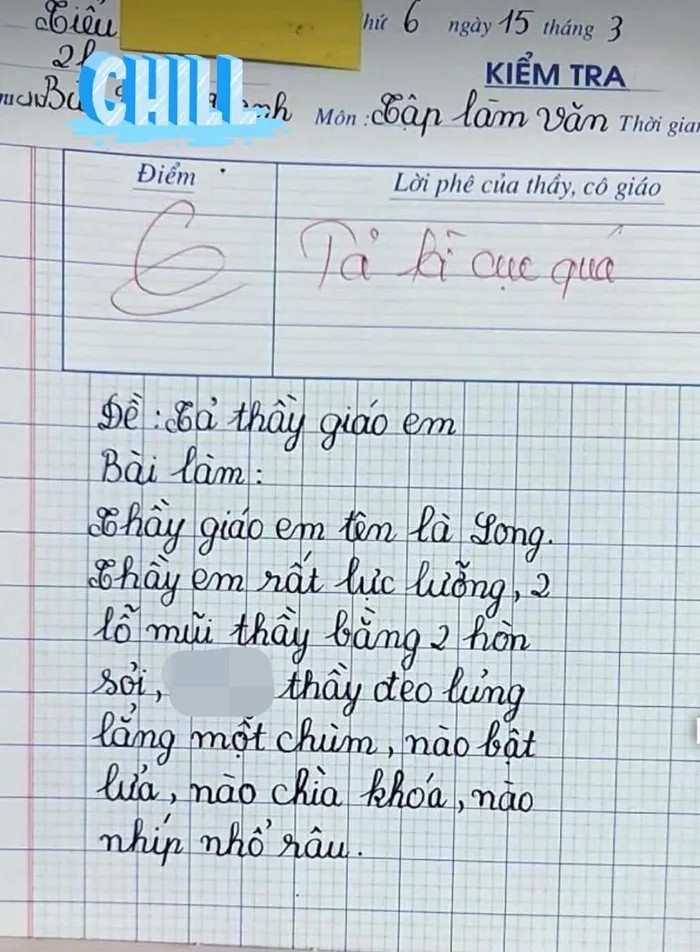 Tiểu
hứ 6 ngày 15 tháng 3
CHILL
KIỂM TRA
Môn : Tập làm văn Thời gian
Điểm
Lời phê của thầy, cô giáo
6
Tả kì cục quá
Đề : Tả thầy giáo em
Bài làm :
Thầy giáo em tên là Long.
Thầy em rất lực lưỡng, 2
lỗ mũi thầy bằng 2 hòn
sỏi, thầy đeo lủng
lẳng một chùm, nào bật
lửa, nào chìa khóa, nào
nhíp nhổ râu.